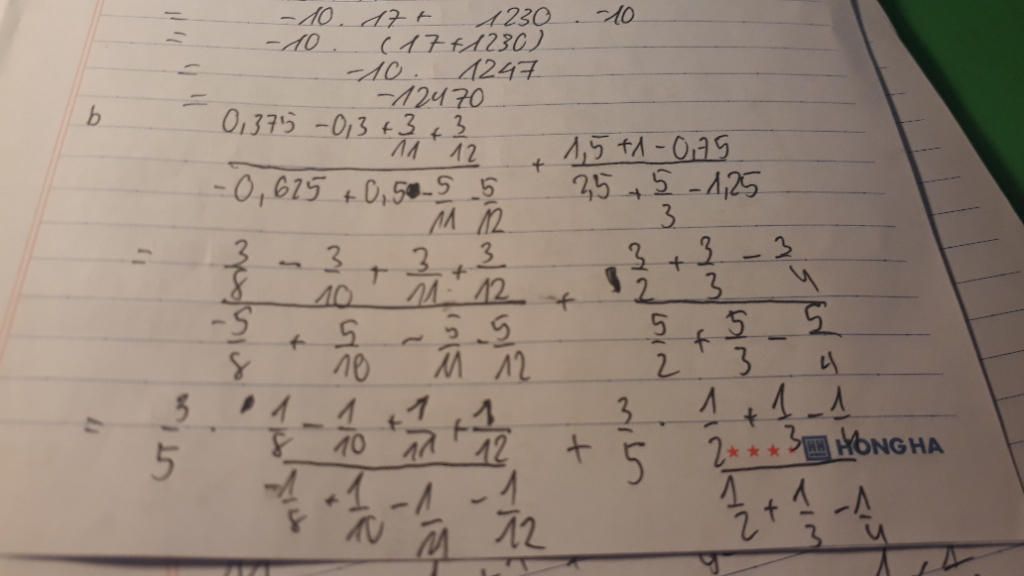 = -10 . 17 + 1230 . -10
= -10 . (17 + 1230)
= -10 . 1247
= -12470
b (0,375 - 0,3 + 3/11 + 3/12)/(-0,625 + 0,5 - 5/11 - 5/12) + (1,5 + 1 - 0,75)/(2,5 + 5/3 - 1,25)
= (3/8 - 3/10 + 3/11 + 3/12)/(-5/8 + 5/10 - 5/11 - 5/12) + (3/2 + 3/3 - 3/4)/(5/2 + 5/3 - 5/4)
= 3/5 . (1/8 - 1/10 + 1/11 + 1/12)/(-1/8 + 1/10 - 1/11 - 1/12) + 3/5 . (1/2 + 1/3 - 1/4)/(1/2 + 1/3 - 1/4)
HONG HA